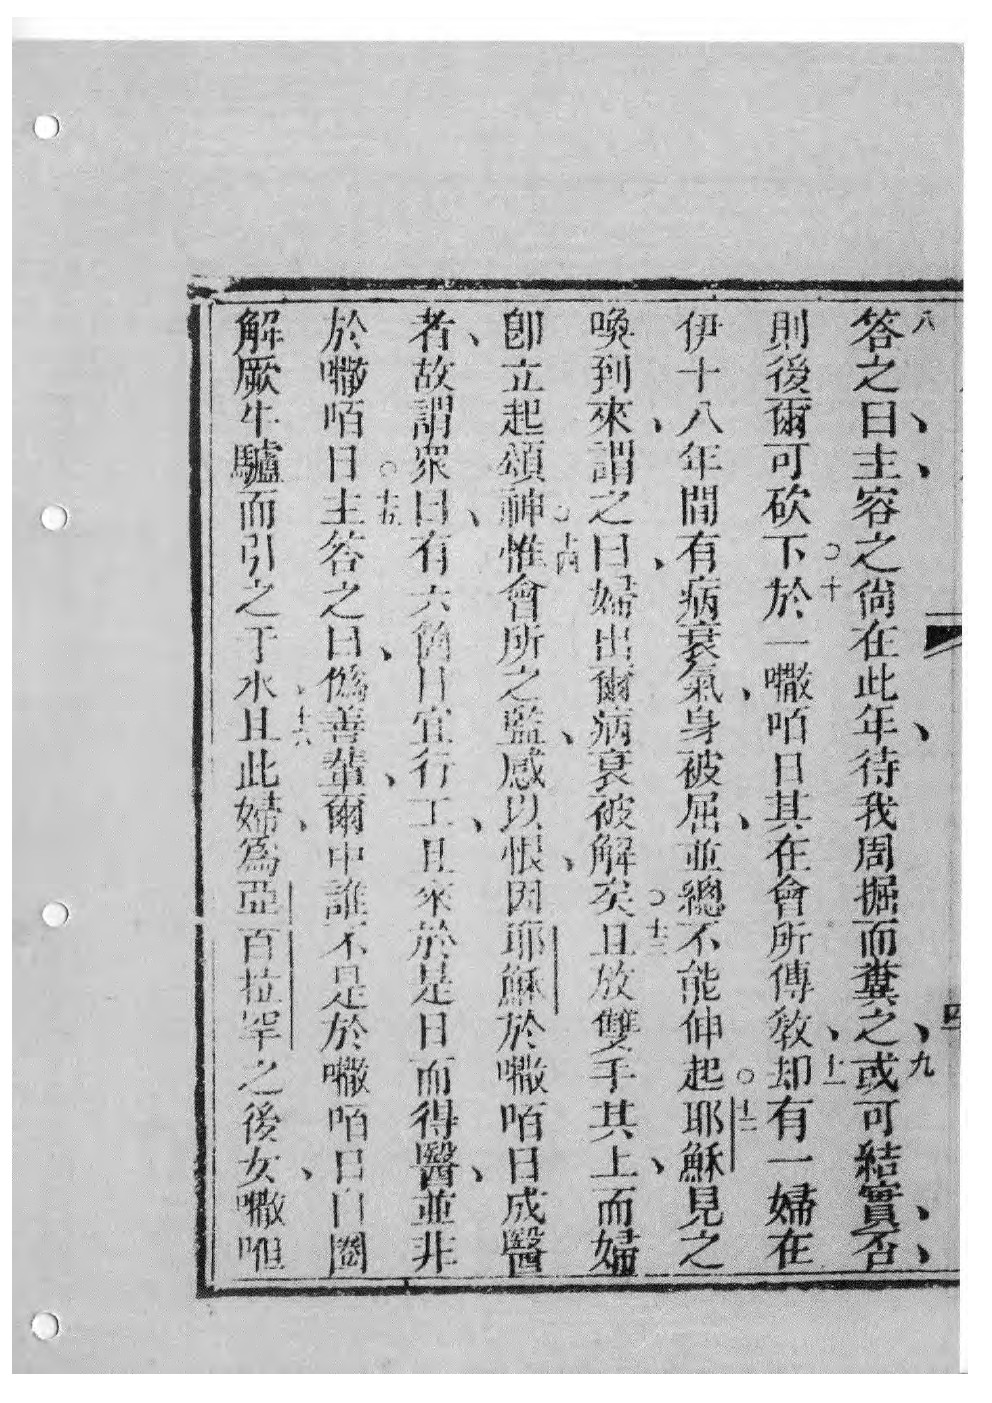 八答之曰、主、容之尙在此年、待我周掘而糞之、九或可結實、否、
則後爾可砍下○十於一㘔咟日其在會所傳教、十一却有一婦在
伊十八年間有病衰氣、身被屈、並總不能伸起○十二耶穌見之
喚到來、謂之曰、婦出爾病衰被解矣○十三且放雙手其上、而婦
卽立起頌神○十四惟會所之監、感以恨、因耶穌於㘔咟日成醫
者、故謂衆曰、有六個日宜行工、且來於是日而得醫、並非
於㘔咟日○十五主答之曰、僞善輩、爾中誰不是於㘔咟日自圈
解厥牛驢而引之于水、十六且此婦、爲亞百拉罕之後女、㘔
四